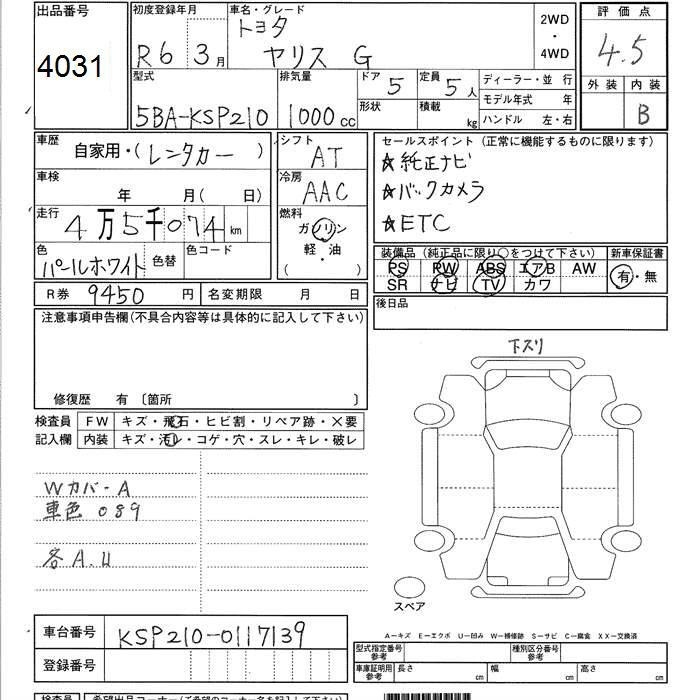 出品番号 4031
初度登録年月 R6 3月
車名・グレード トヨタ ヤリス G
2WD ・ 4WD
評価点 4.5
外装 内装 B
型式 5BA-KSP210
排気量 1000cc
ドア 5 定員 5人
形状 積載 kg
ディーラー・並行
モデル年式 年
ハンドル 左・右
車歴 自家用・(レンタカー)
車検 年 月(日)
走行 4万5千074km
色 パールホワイト 色替 色コード
シフト AT
冷房 AAC
燃料 ガソリン
軽・油
( ・ )
セールスポイント(正常に機能するものに限ります)
☆純正ナビ
☆バックカメラ
☆ETC
装備品(純正品に限り○をつけて下さい) 新車保証書
PS PW ABS エアB AW 有・無
SR ナビ TV カワ
R券 9450円 名変期限 月 日
後日品
注意事項申告欄(不具合内容等は具体的に記入して下さい)
修復歴 有 〔箇所 〕
検査員 FW キズ・飛石・ヒビ割・リペア跡・×要
記入欄 内装 キズ・汚レ・コゲ・穴・スレ・キレ・破レ
Wカバ-A
車色 089
各A.U
下スリ
スペア
A－キズ E－エクボ U－凹み W－補修跡 S－サビ C－腐食 XX－交換済
車台番号 KSP210-0117139
登録番号
型式指定番号 参考 種別区分番号 参考
車庫証明用 参考 長さ cm 幅 cm 高さ cm
検査員 希望出品コーナー(ご希望のコーナー名を記入して下さい)